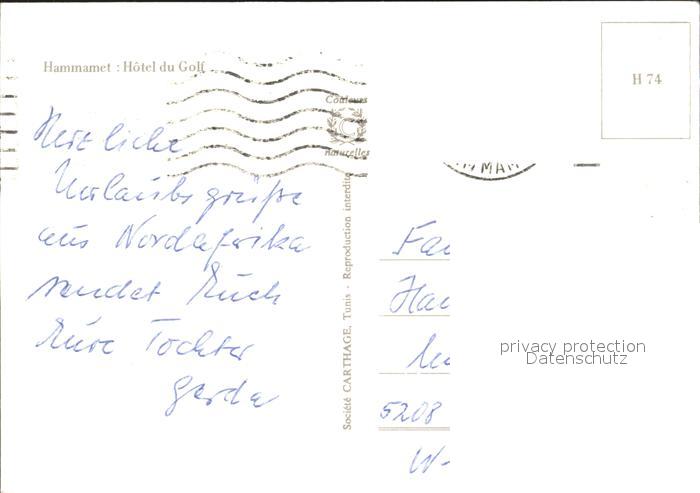 Hammamet : Hôtel du Golf
H 74
Couleurs
naturelles
MAR
Herzliche
Urlaubsgrüße
aus Nordafrika
sendet Euch
Eure Tochter
Gerda
Société CARTHAGE, Tunis - Reproduction interdite
Fa
Ha
5208
W-
privacy protection
Datenschutz